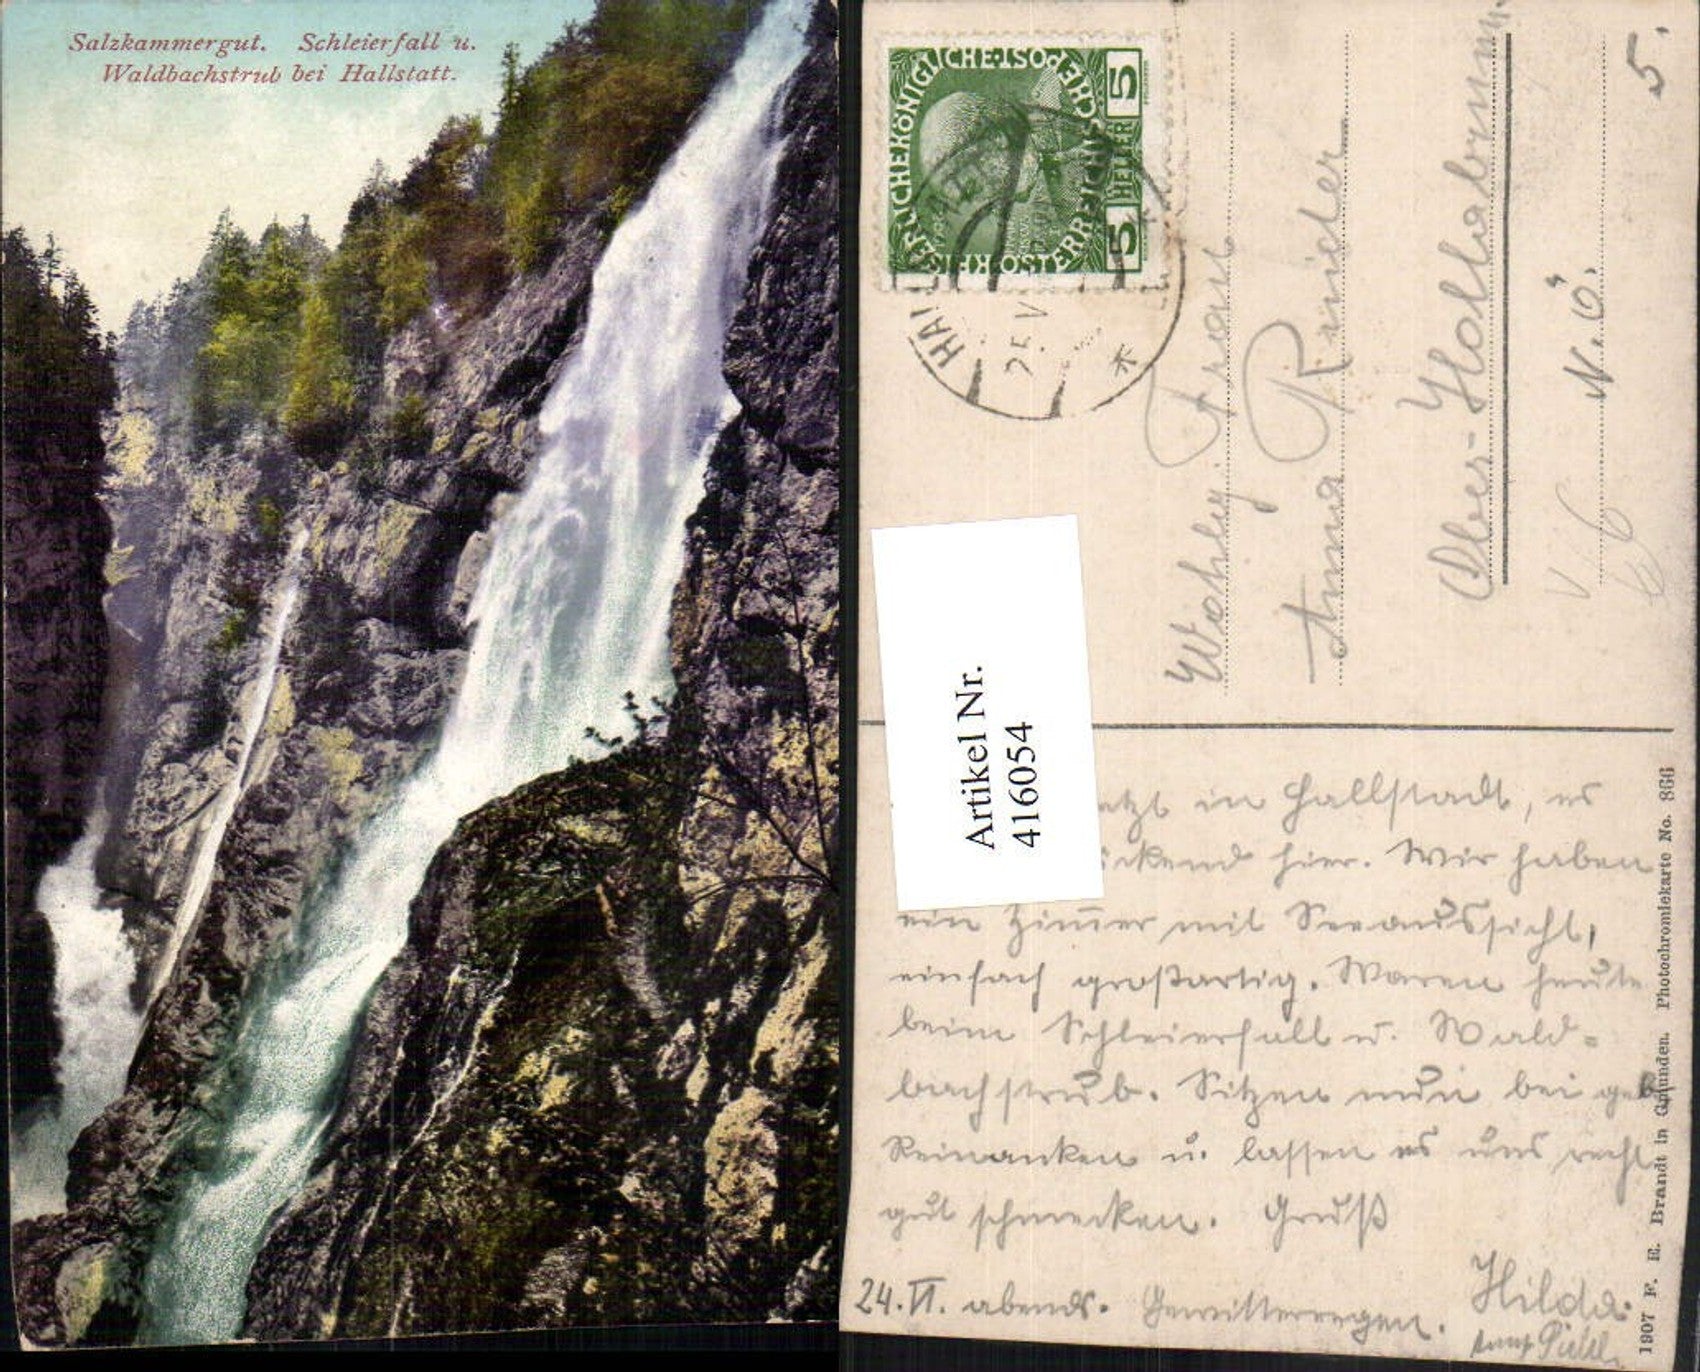 Salzkammergut. Schleierfall u.
Waldbachstrub bei Hallstatt.
KAISERLICHEKÖNIGLICHE POST
ÖSTERREICHISCHE
5 HELLER 5
25 V
Frau
Anna
Ober-Hollabrunn
N.Ö.
5.
Artikel Nr.
416054
in Hallstadt, es
hier. Wir haben
ein Zimmer mit Seeaussicht,
einfach großartig. Waren heute
beim Schleierfall u. Wald-
bachstrub. Sitzen nun bei
Reinanken u. lassen es uns recht
gut schmecken. Gruß
Hilda.
24.VI. abends. Gewitterregen.
1907 F. E. Brandt in Gmunden. Photochromiekarte No. 866